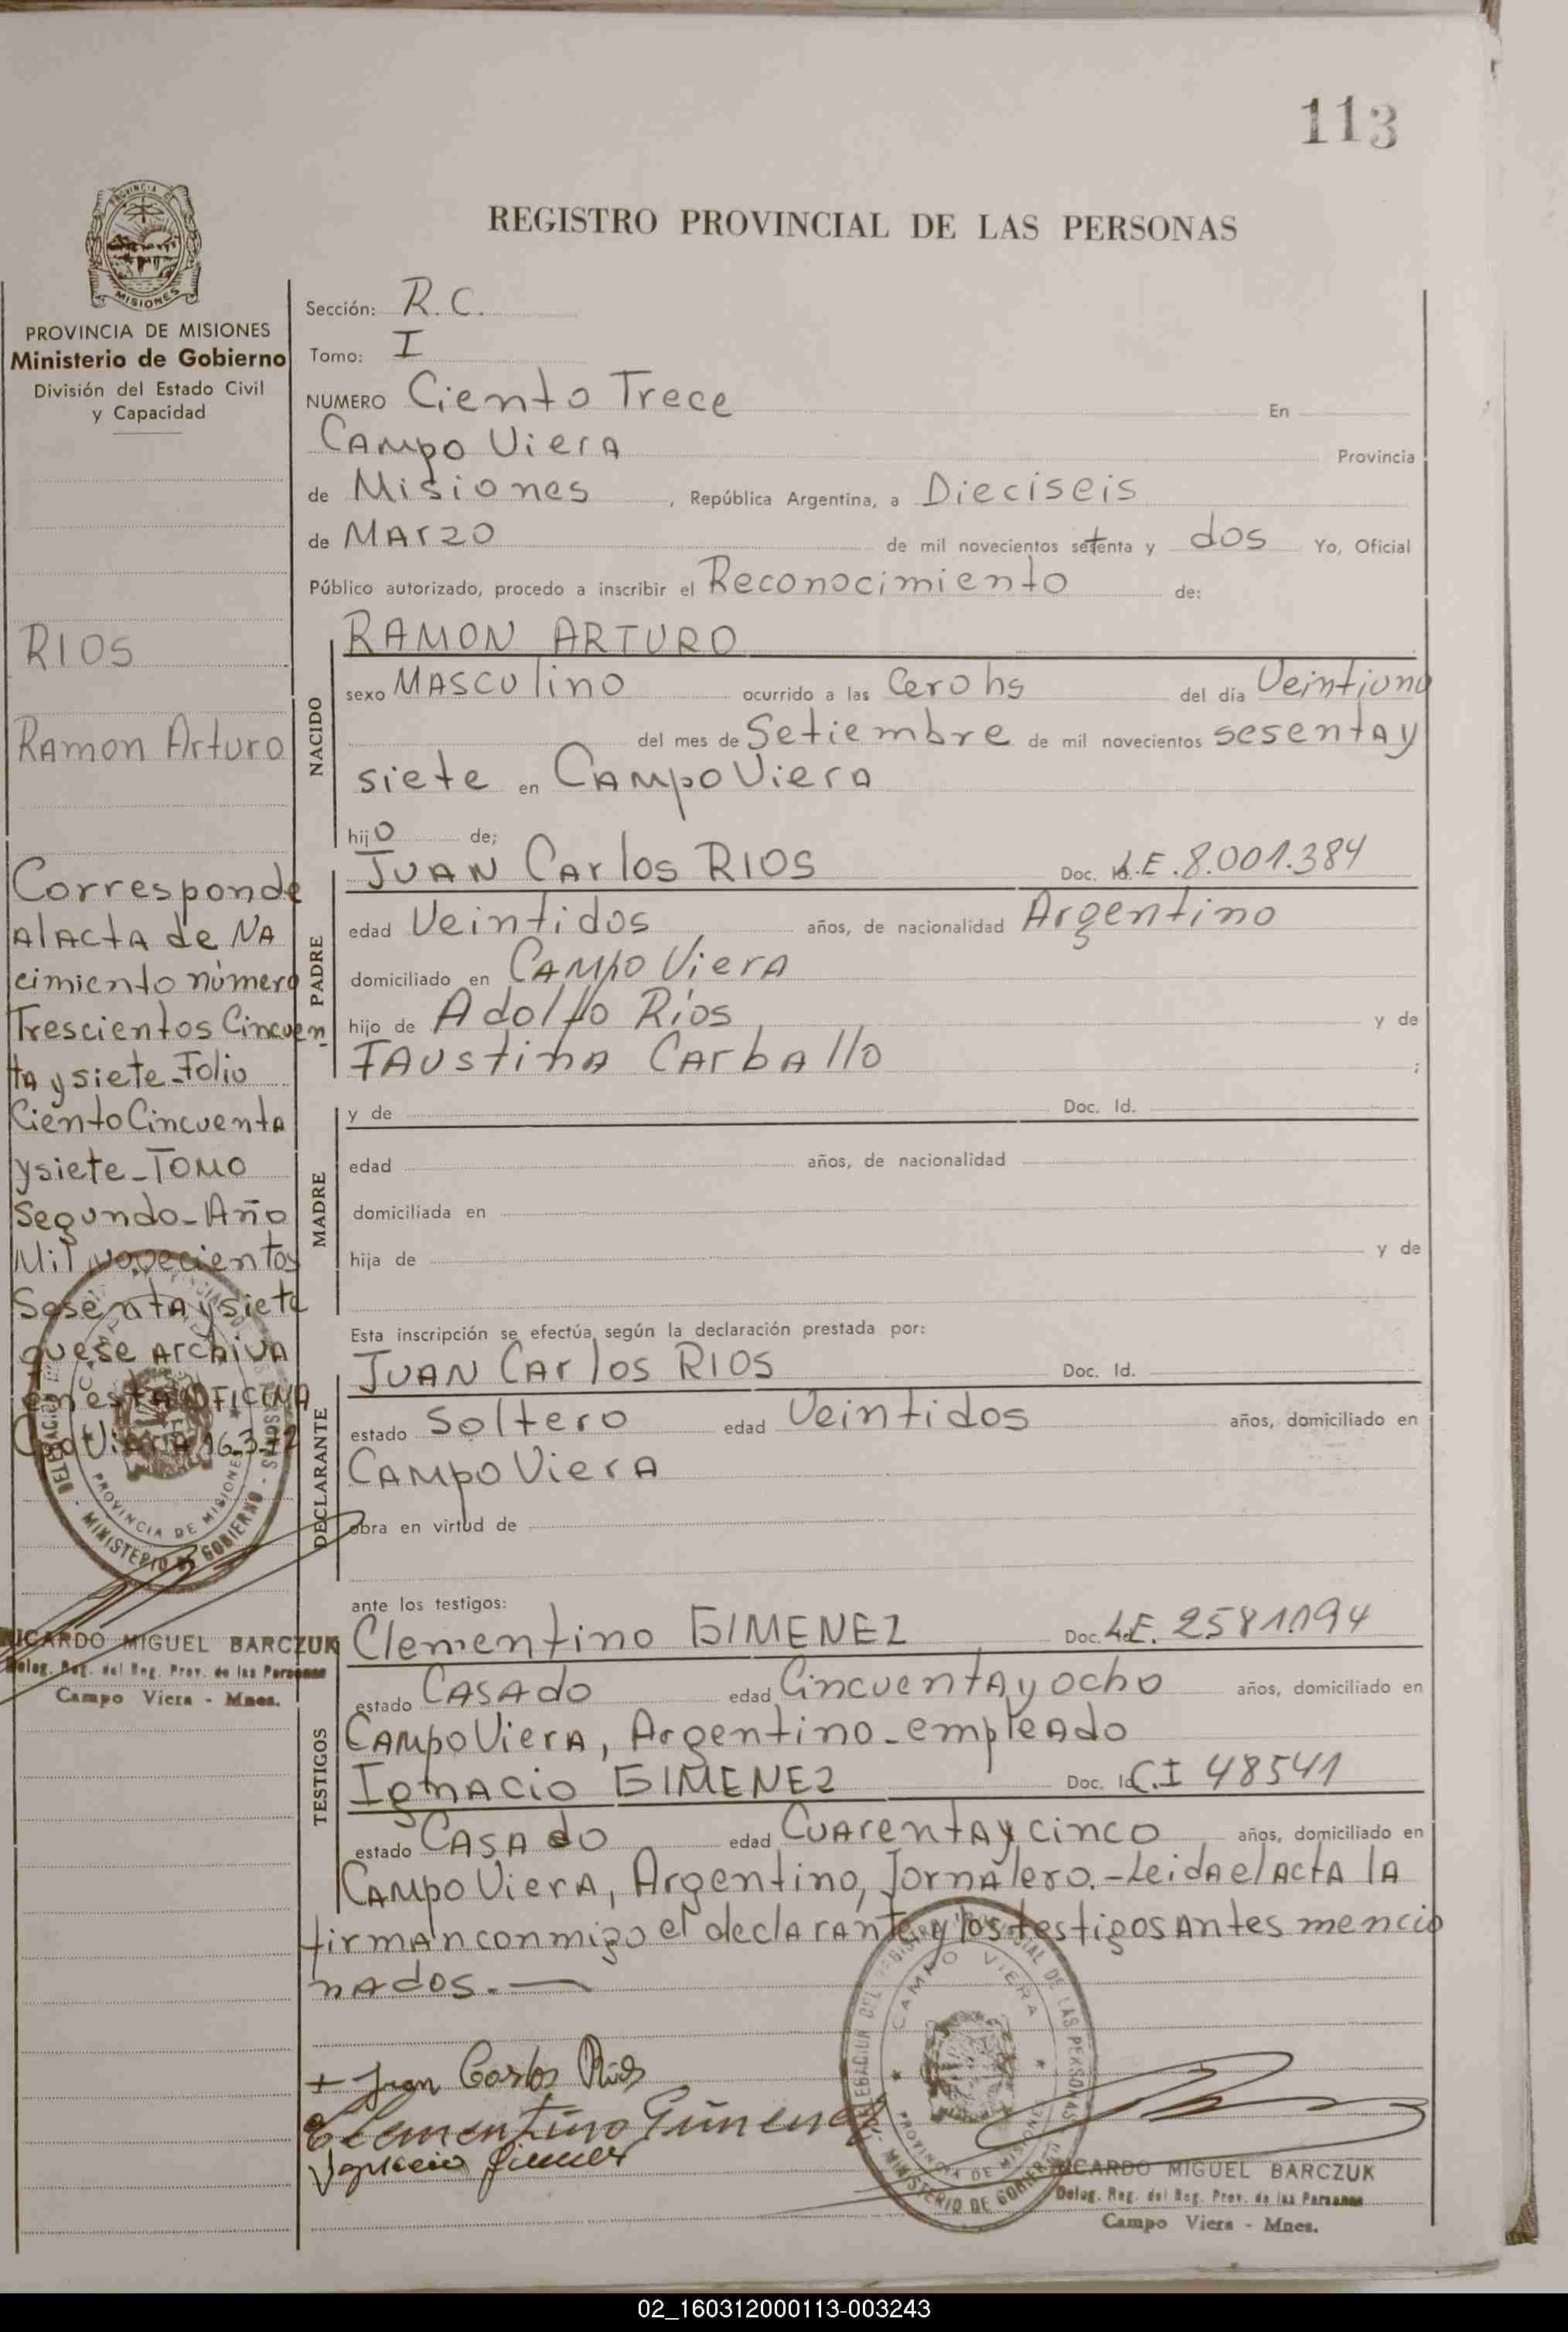 113
PROVINCIA DE
MISIONES
REGISTRO PROVINCIAL DE LAS PERSONAS
PROVINCIA DE MISIONES
Ministerio de Gobierno
División del Estado Civil
y Capacidad
RIOS
Ramon Arturo
Corresponde
Al ActA de NA
cimiento número
Trescientos Cincuen
tA y siete_Folio
Ciento Cincuenta
y siete_Tomo
Segundo_Año
Mil novecientos
SesentA y siete
que se ArchivA
en estA OFICINA
Cpo Viera 16.3.72
MINISTERIO DE GOBIERNO
PROVINCIA DE MISIONES
RICARDO MIGUEL BARCZUK
Deleg. Reg. del Reg. Prov. de las Personas
Campo Viera - Mnes.
Sección: R.C.
Tomo: I
NUMERO Ciento Trece En
Campo Viera Provincia
de Misiones, República Argentina, a Dieciseis
de Marzo de mil novecientos setenta y dos Yo, Oficial
Público autorizado, procedo a inscribir el Reconocimiento de:
NACIDO
RAMON ARTURO
sexo Masculino ocurrido a las Cero hs del día Veintiuno
del mes de Setiembre de mil novecientos sesenta y
siete en Campo Viera
hijo de;
PADRE
Juan Carlos RIOS Doc. Id. L.E. 8.001.384
edad Veintidos años, de nacionalidad Argentino
domiciliado en Campo Viera
hijo de Adolfo Ríos y de
Faustina Carballo ;
MADRE
y de Doc. Id.
edad años, de nacionalidad
domiciliada en
hija de y de
Esta inscripción se efectúa según la declaración prestada por:
DECLARANTE
Juan Carlos RIOS Doc. Id.
estado Soltero edad Veintidos años, domiciliado en
Campo Viera
obra en virtud de
ante los testigos:
TESTIGOS
Clementino GIMENEZ Doc. Id. L.E. 2581.194
estado Casado edad Cincuenta y ocho años, domiciliado en
Campo Viera, Argentino_empleado
Ignacio GIMENEZ Doc. Id. C.I 48541
estado Casado edad Cuarenta y cinco años, domiciliado en
Campo Viera, Argentino, Jornalero.-Leida el Acta la
firman conmigo el declarante y los testigos Antes mencio
nados.—
Juan Carlos Rios
Clementino Gimenez
Ignacio Gimenez
DELEGACION DEL REGISTRO PROVINCIAL DE LAS PERSONAS
CAMPO VIERA
PROVINCIA DE MISIONES
MINISTERIO DE GOBIERNO
RICARDO MIGUEL BARCZUK
Deleg. Reg. del Reg. Prov. de las Personas
Campo Viera - Mnes.
02_160312000113-003243